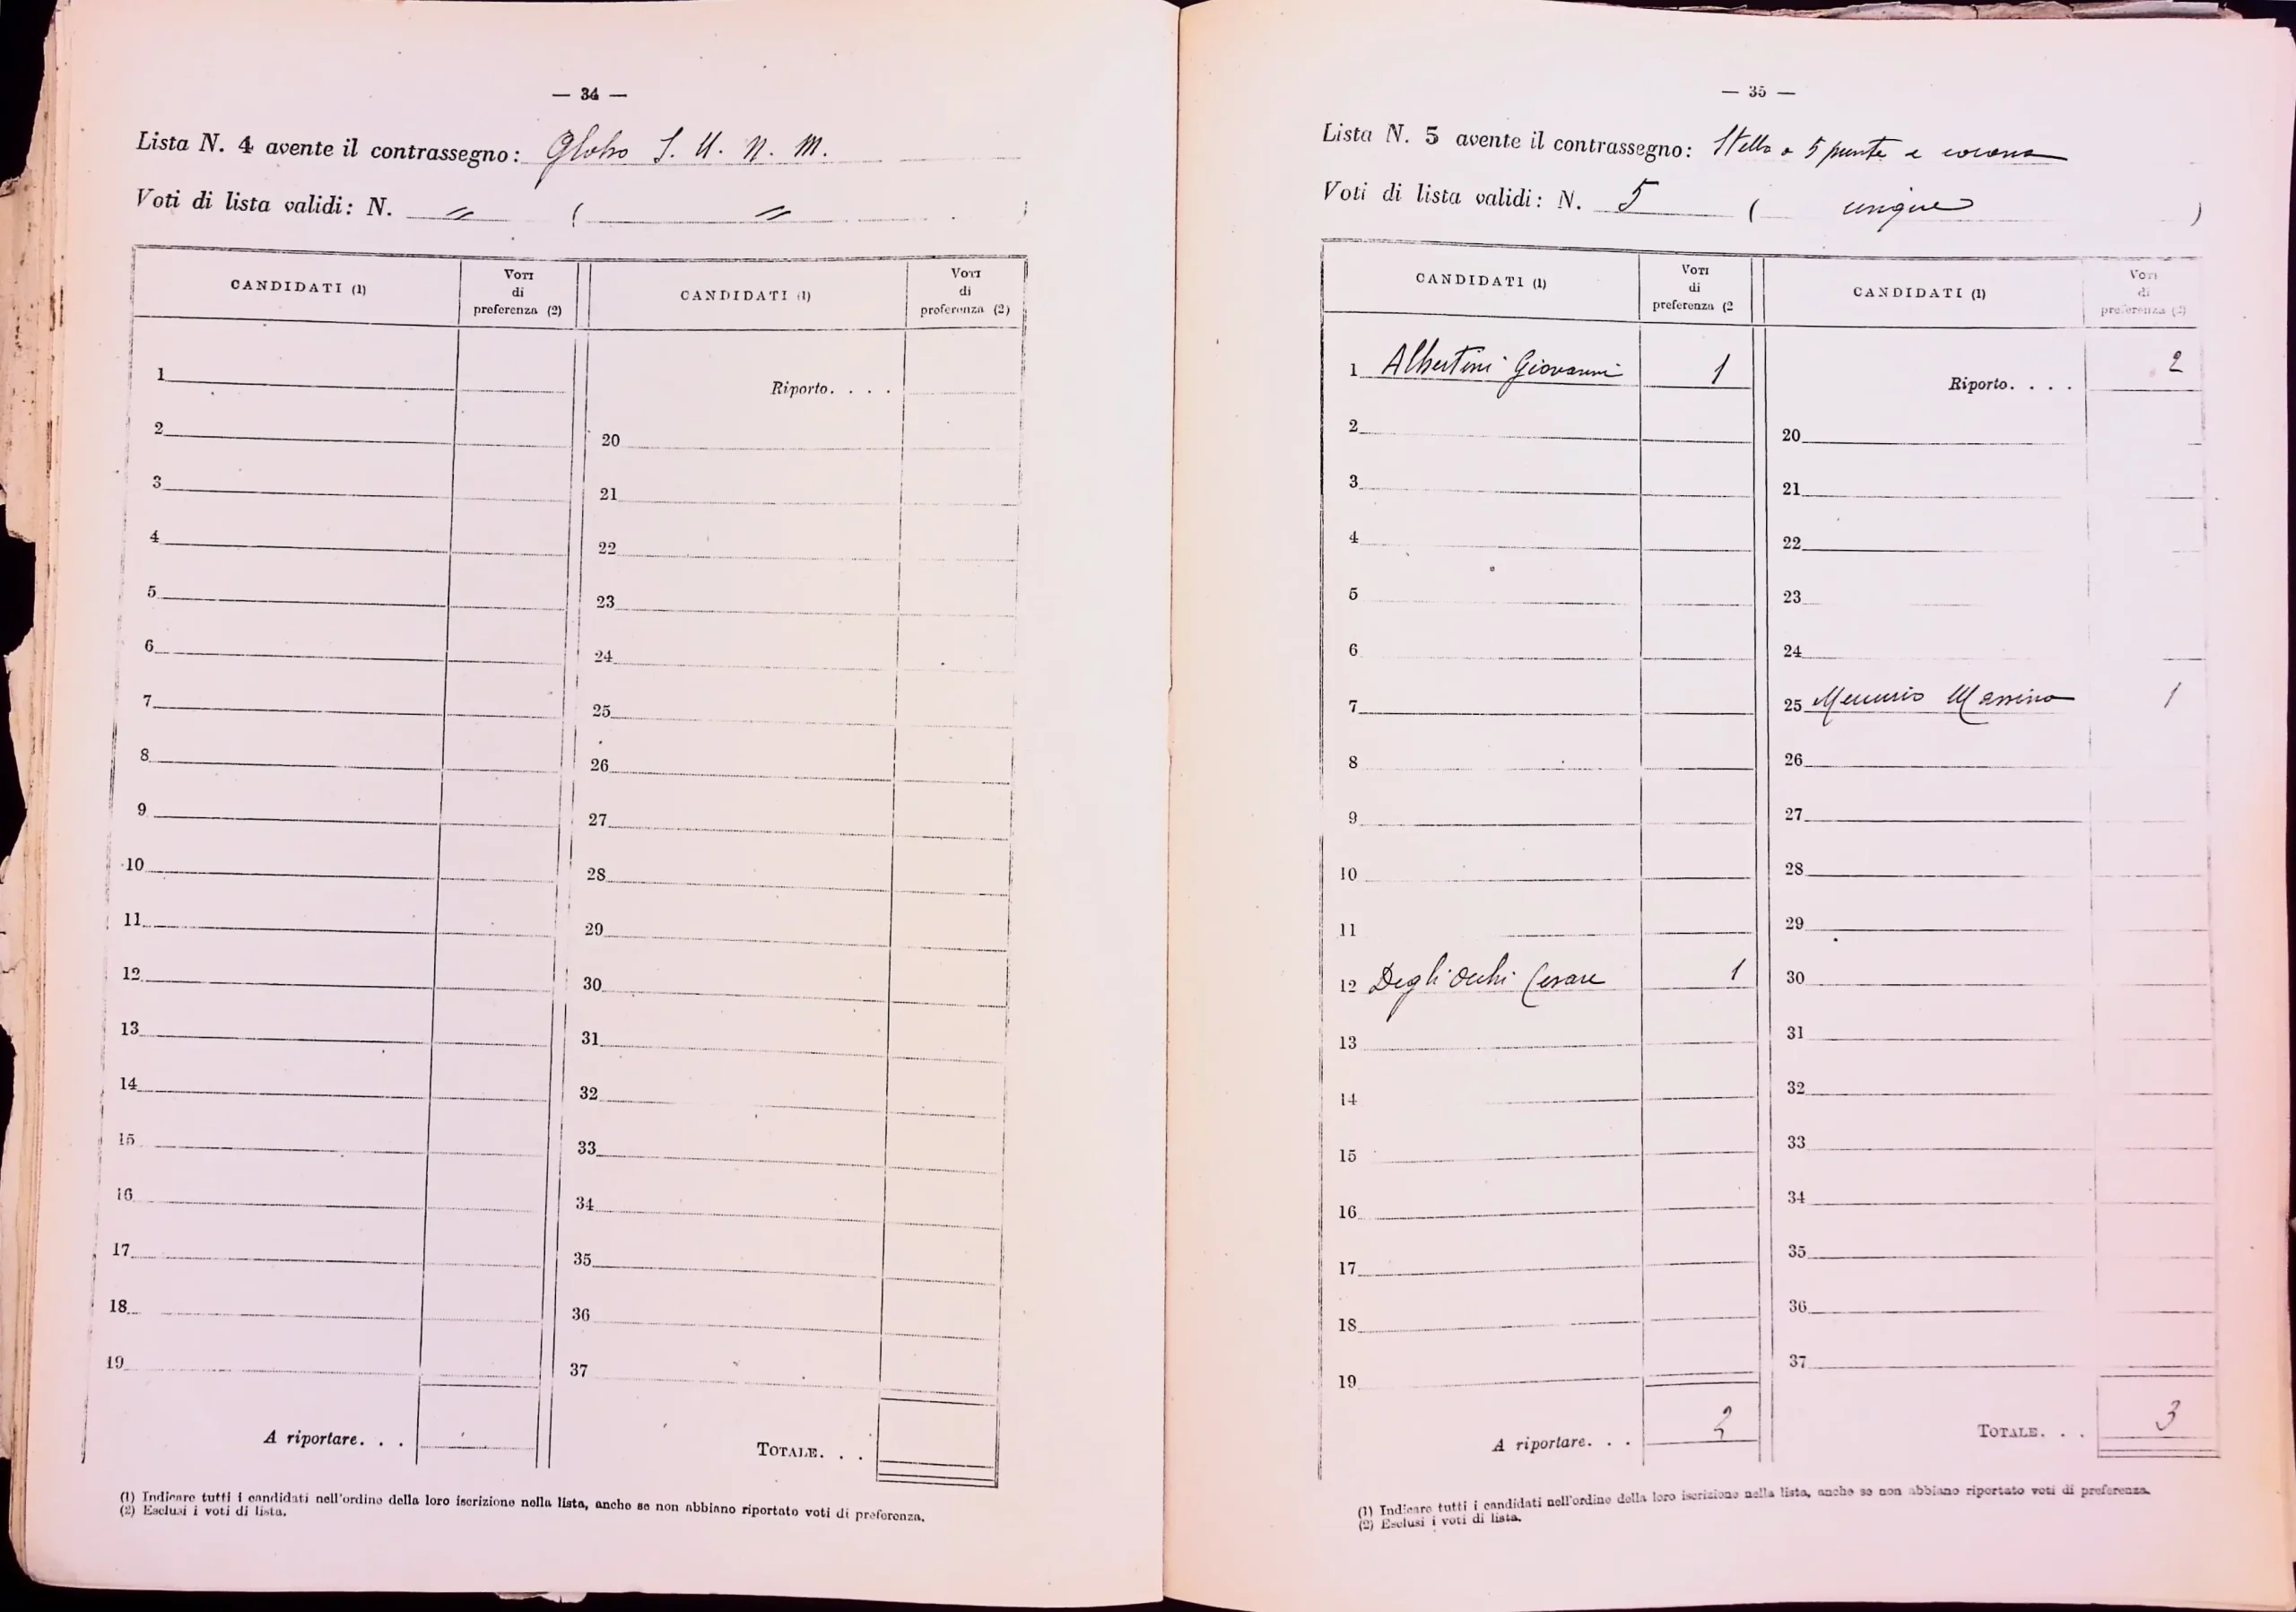 — 34 —
Lista N. 4 avente il contrassegno: Globo S. U. N. M.
Voti di lista validi: N.〃 ( 〃 )
CANDIDATI (1) Voti di preferenza (2) CANDIDATI (1) Voti di preferenza (2)
1 Riporto. . . .
2 20
3 21
4 22
5 23
6 24
7 25
8 26
9 27
10 28
11 29
12 30
13 31
14 32
15 33
16 34
17 35
18 36
19 37
A riportare. . . TOTALE. . .
(1) Indicare tutti i candidati nell'ordine della loro iscrizione nella lista, anche se non abbiano riportato voti di preferenza.
(2) Esclusi i voti di lista.
— 35 —
Lista N. 5 avente il contrassegno: Stella a 5 punte e corona
Voti di lista validi: N. 5 ( cinque )
CANDIDATI (1) Voti di preferenza (2 CANDIDATI (1) Voti di preferenza (2)
1 Albertini Giovanni 1 Riporto. . . . 2
2 20
3 21
4 22
5 23
6 24
7 25 Massimo 1
8 26
9 27
10 28
11 29
12 Degli Occhi Cesare 1 30
13 31
14 32
15 33
16 34
17 35
18 36
19 37
A riportare. . . 2 TOTALE. . . 3
(1) Indicare tutti i candidati nell'ordine della loro iscrizione nella lista, anche se non abbiano riportato voti di preferenza.
(2) Esclusi i voti di lista.